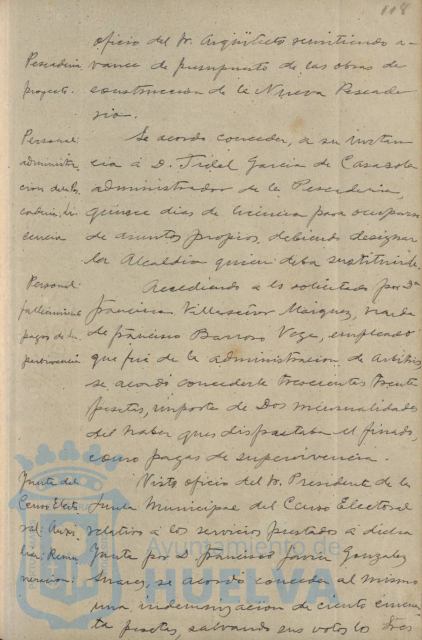 118
oficio del Sr. Arquitecto remitiendo a-
Pescaderia
vance de presupuesto de las obras de
proyecto.
construccion de la Nueva Pescade
ria.
Personal
Se acordó conceder, a su instan
administra
cia á D. Fidel Garcia de Casasola
cion de la Pes
administrador de la Pescaderia,
caderia, Li
quince dias de licencia para ocuparse
cencia
de asuntos propios, debiendo designar
la Alcaldia quien deba sustituirle.
Personal
Accediendo a lo solicitado por Dª
fallecimiento
Francisca Villaseñor Márquez, viuda
pagas de su
de Francisco Barroso Vega, empleado
pervivencia
que fué de la administracion de Arbitrios
se acordó concederle trescientas treinta
pesetas, importe de dos mensualidades
del haber que disfrutaba el finado,
como pagas de supervivencia.
Junta del
Visto oficio del Sr. Presidente de la
Censo Elect
Junta Municipal del Censo Electoral
relativo a los servicios prestados a dicha
Junta por D. Francisco Javier Gonzalez
Suarez, se acordó conceder al mismo
una indemnizacion de ciento cincuen
ta pesetas, salvando sus votos los Sres
Ayuntamiento de
HUELVA